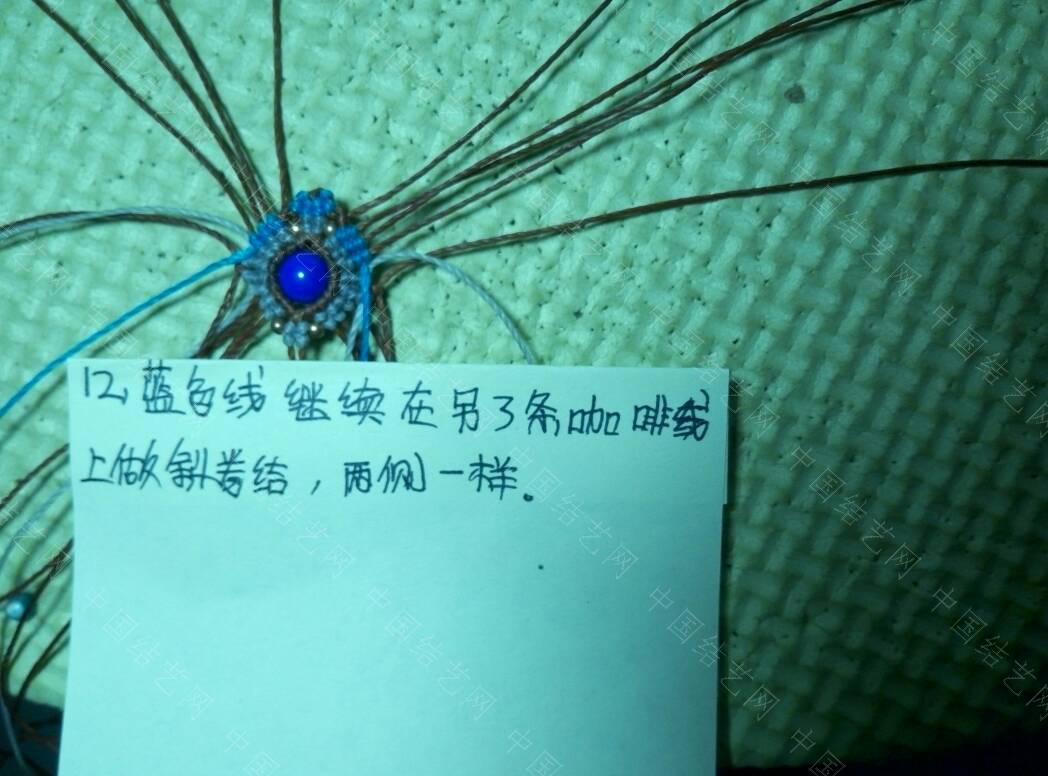 12、蓝色线继续在另3条咖啡线
上做斜卷结，两侧一样。
中国结艺网